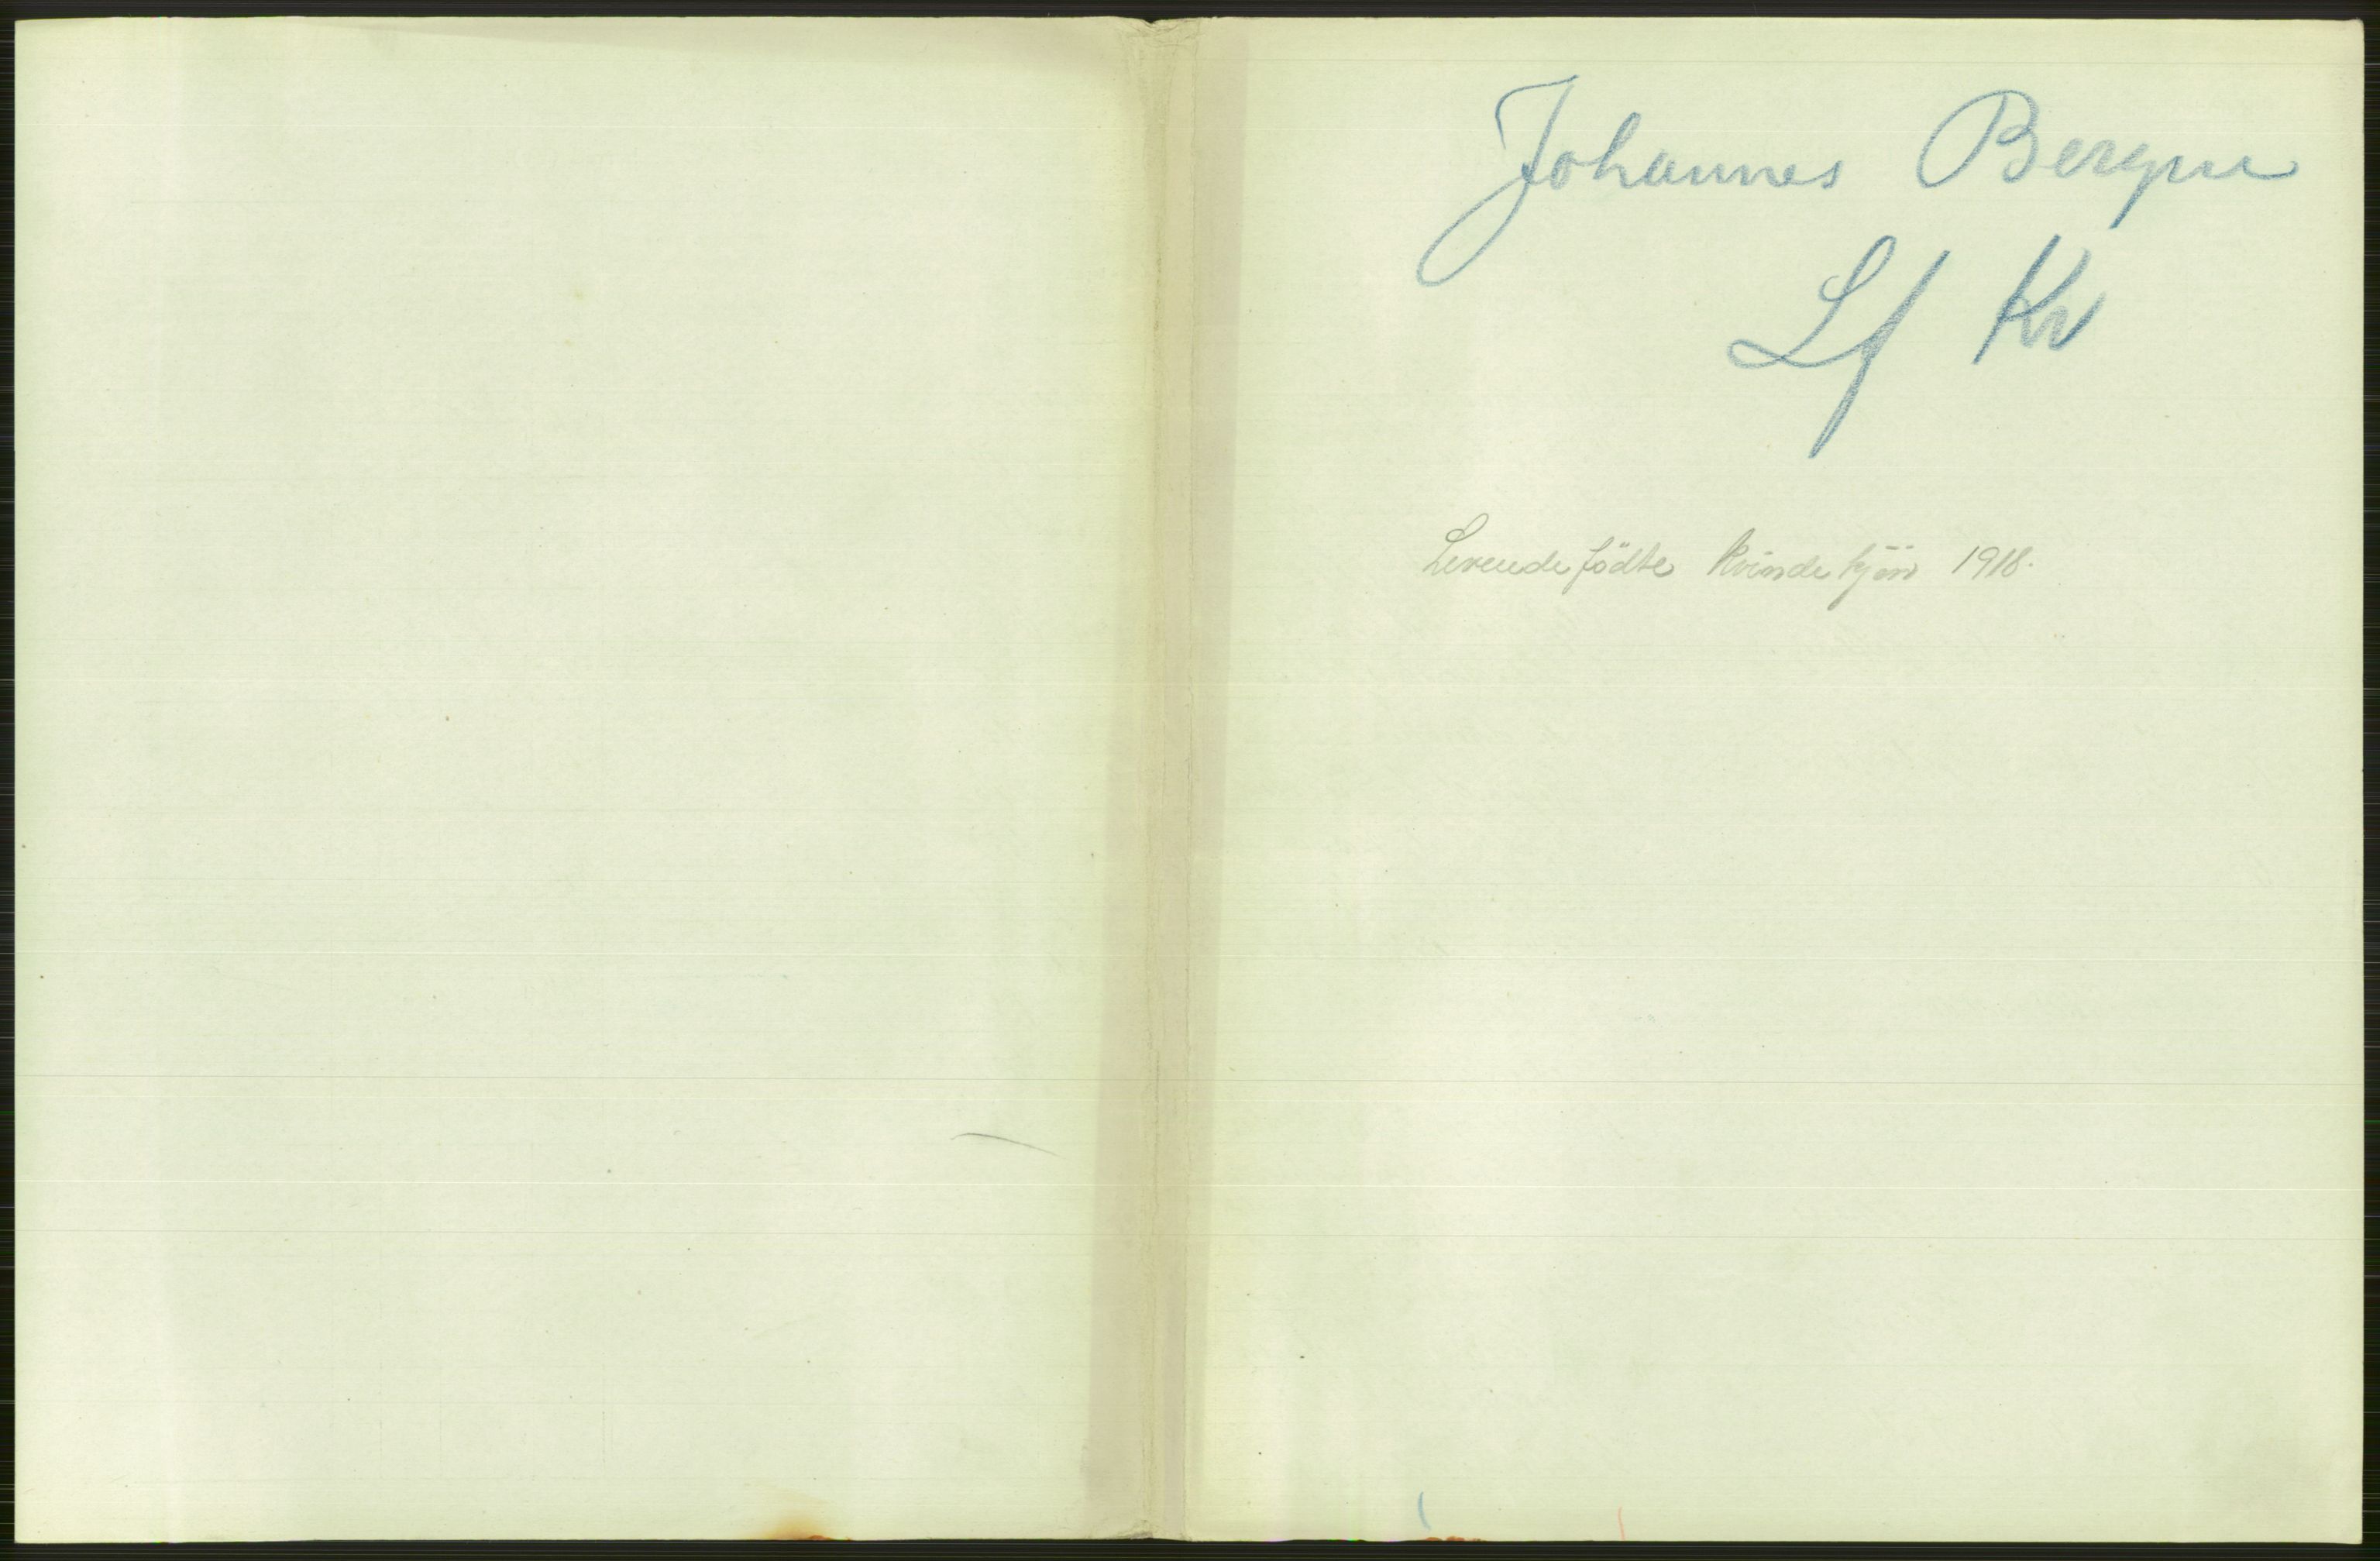 Johannes Bergen
Lf Kv
Levendefödte Kvindekjön 1918.